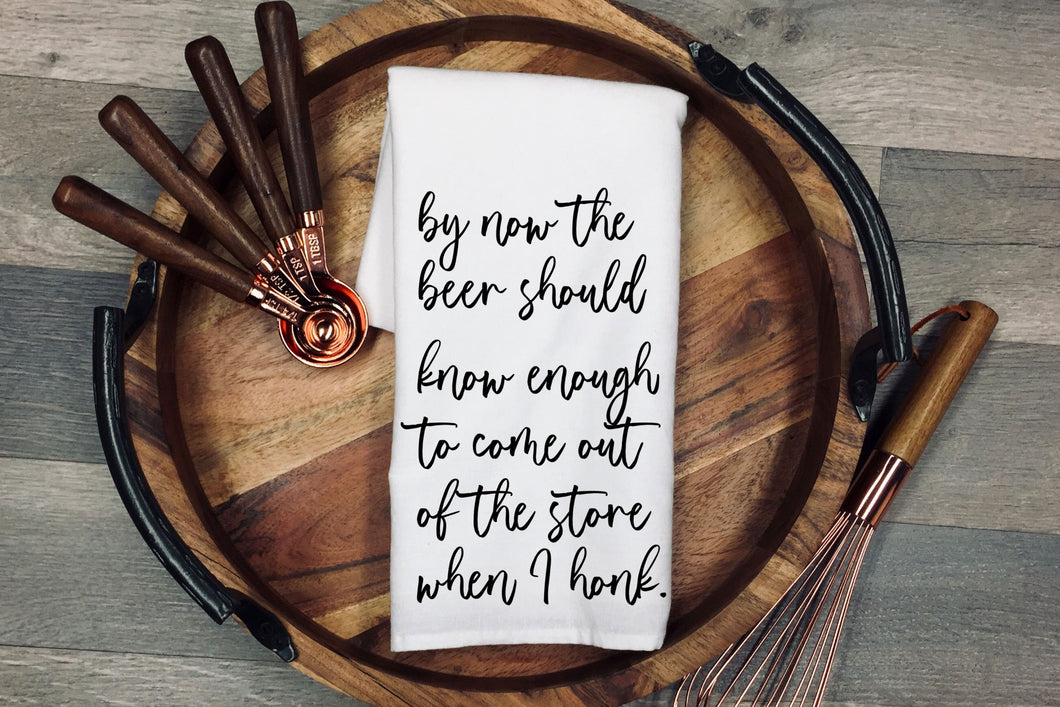 by now the
beer should
know enough
to come out
of the store
when I honk.
1 TBSP
1 TSP
1/2 TSP
1/4 TSP